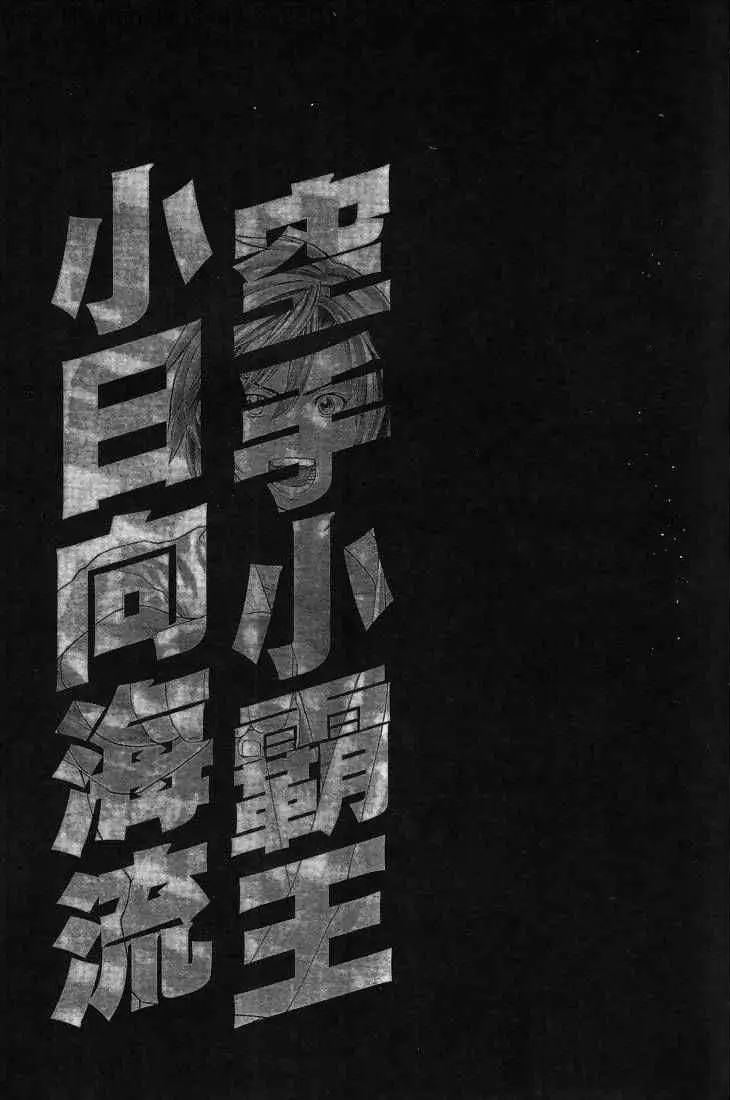 空手小霸王
小日向海流